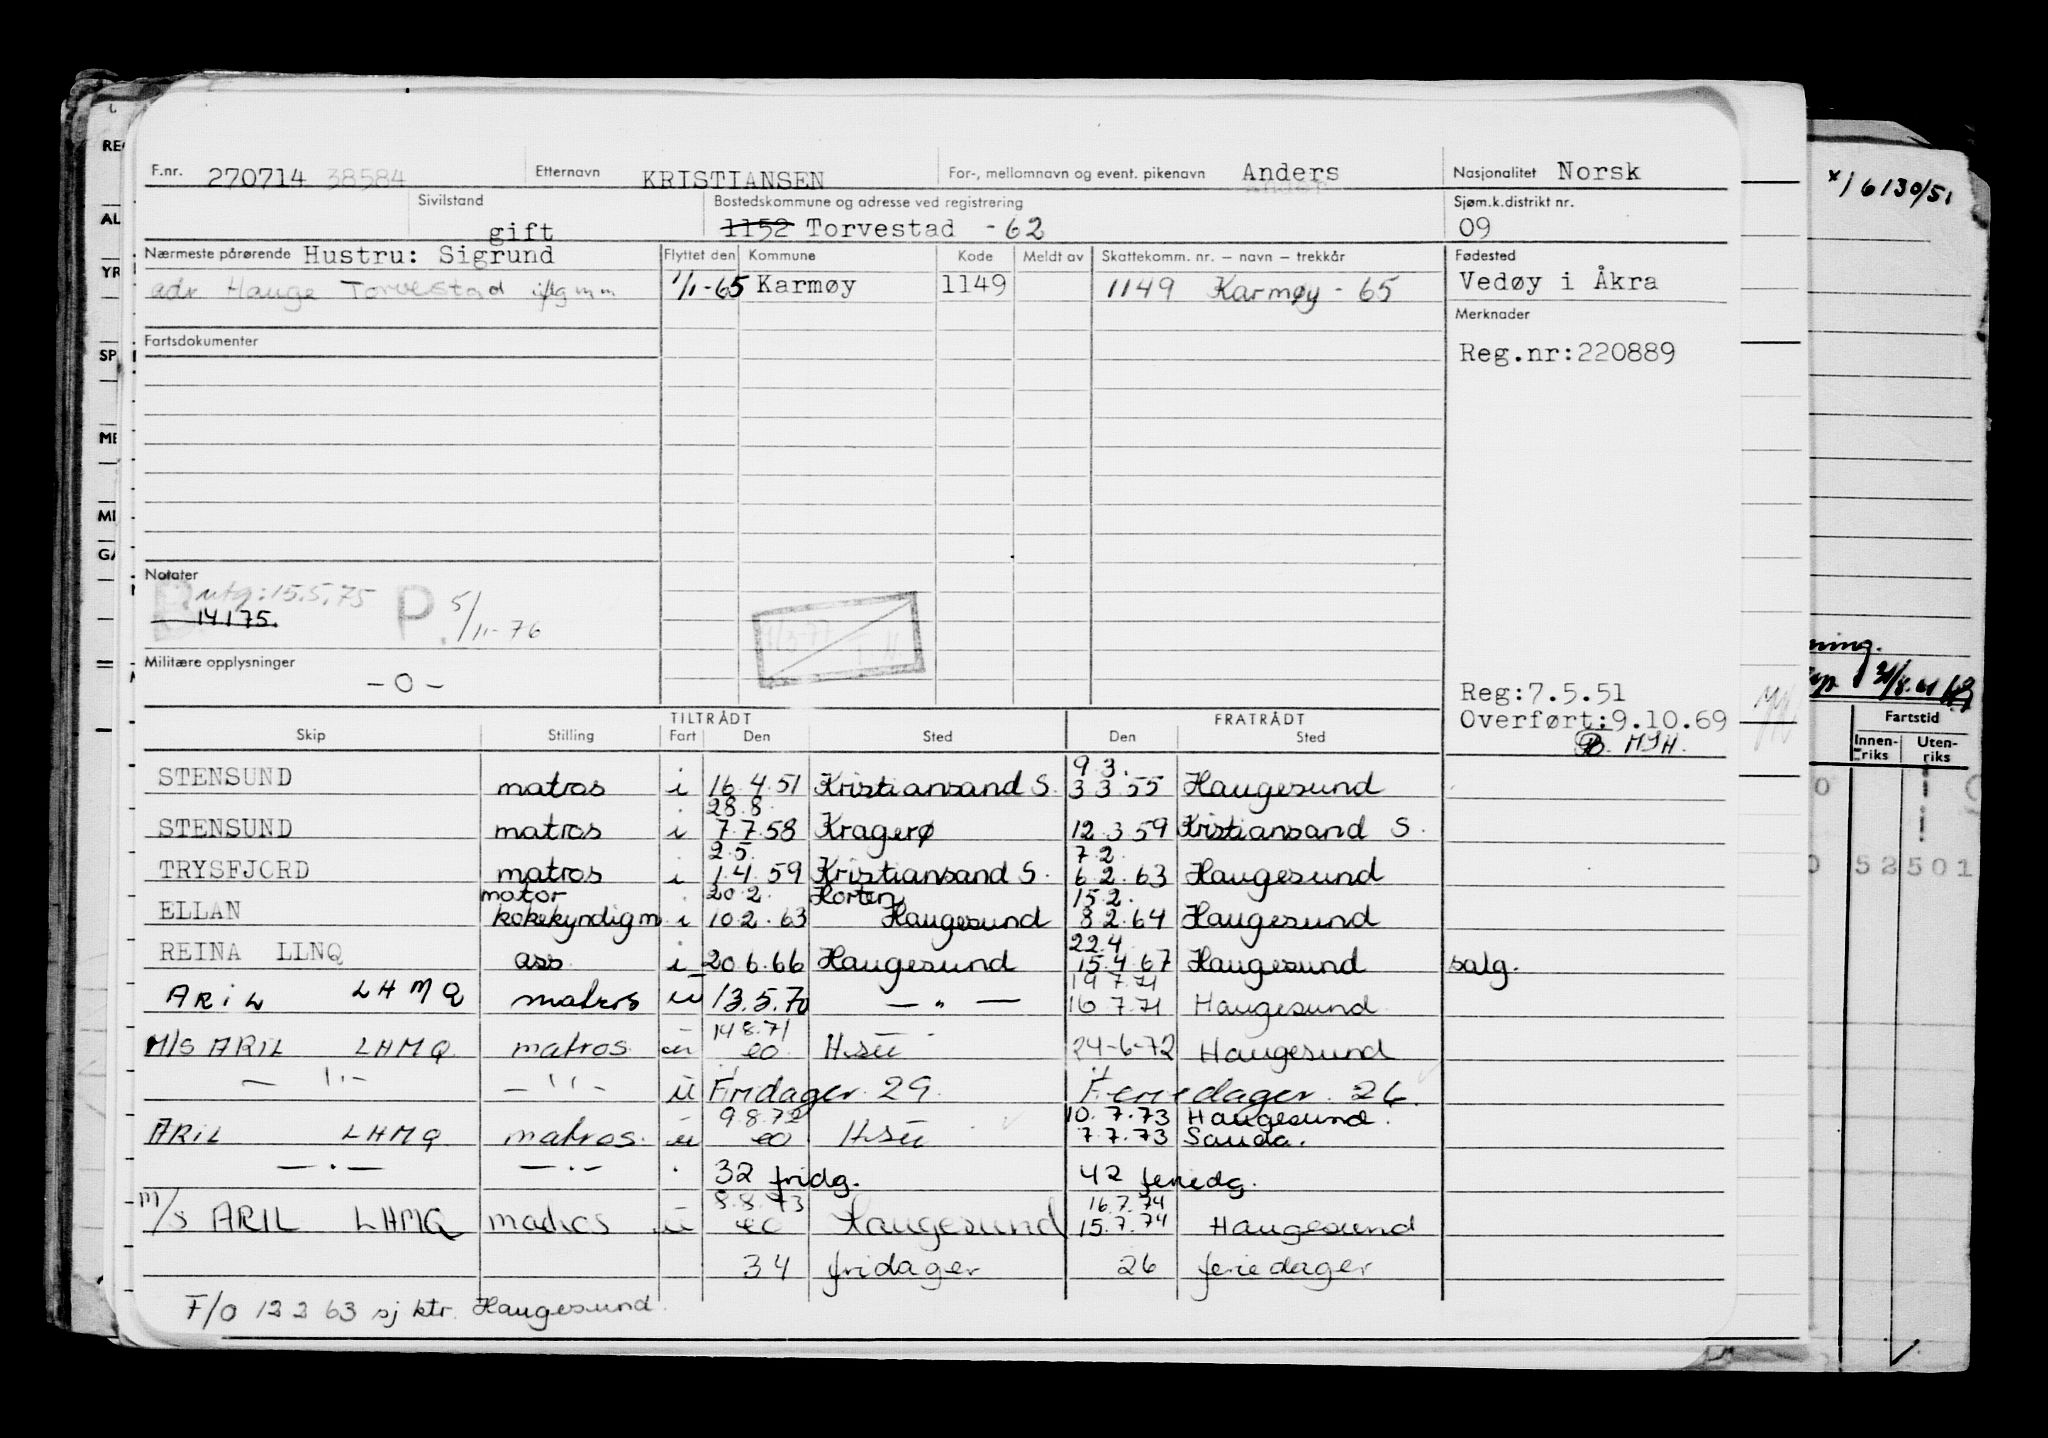 F.nr. 270714 38584 Etternavn KRISTIANSEN For-, mellomnavn og event. pikenavn Anders Nasjonalitet Norsk
Sivilstand gift Bostedskommune og adresse ved registrering 1152 Torvestad - 62 Sjøm.k.distrikt nr. 09
Nærmeste pårørende Hustru: Sigrund Flyttet den Kommune Kode Meldt av Skattekomm. nr. – navn – trekkår Fødested
adr Hauge Torvestad 1/1-65 Karmøy 1149 1149 Karmøy - 65 Vedøy i Åkra
Merknader
Fartsdokumenter
Reg.nr:220889
Notater
utg: 15.5.75 P. 5/11-76
14175.
Militære opplysninger
- 0 -
Reg:7.5.51
Overført:9.10.69
MSH.
TILTRÅDT FRATRÅDT
Skip Stilling Fart Den Sted Den Sted
9.3.
STENSUND matros i 16.4.51 Kristiansand S. 3 3.55 Haugesund
28.8.
STENSUND matros i 7.7.58 Kragerø 12.3.59 Kristiansand S.
2.5. 7.2.
TRYSFJORD matros i 1.4.59 Kristiansand S. 6.2.63 Haugesund
motor 20.2. Horten 15.2.
ELLAN kokekyndig m i 10.2.63 Haugesund 8 2.64 Haugesund
22.4
REINA LLNQ ass. i 20.6.66 Haugesund 15.4.67 Haugesund salg.
19 7.71
ARIL LHMQ matros u 13.5.70 — " — 16.7.71 Haugesund
14 8.71
M/S ARIL LHMQ matros u eo H.su 24-6-72 Haugesund
— " — — " — u Fridager 29 Feriedager. 26.
9.8.72 10.7.73 Haugesund.
ARIL LHMQ matros. u eo H.su 7.7.73 Sauda.
— " — — " — 32 fridg. 42 feriedg.
8.8.73 16.7.74
M/S ARIL LHMQ matros u eo Haugesund 15.7.74 Haugesund
34 fridager 26 feriedager
F/O 12 2 63 sj ktr. Haugesund.
REG
AL
YR
SP
ME
MI
GA
x) 6130/51
ning.
Fartstid
Innen-riks Uten-riks
0
0 52501